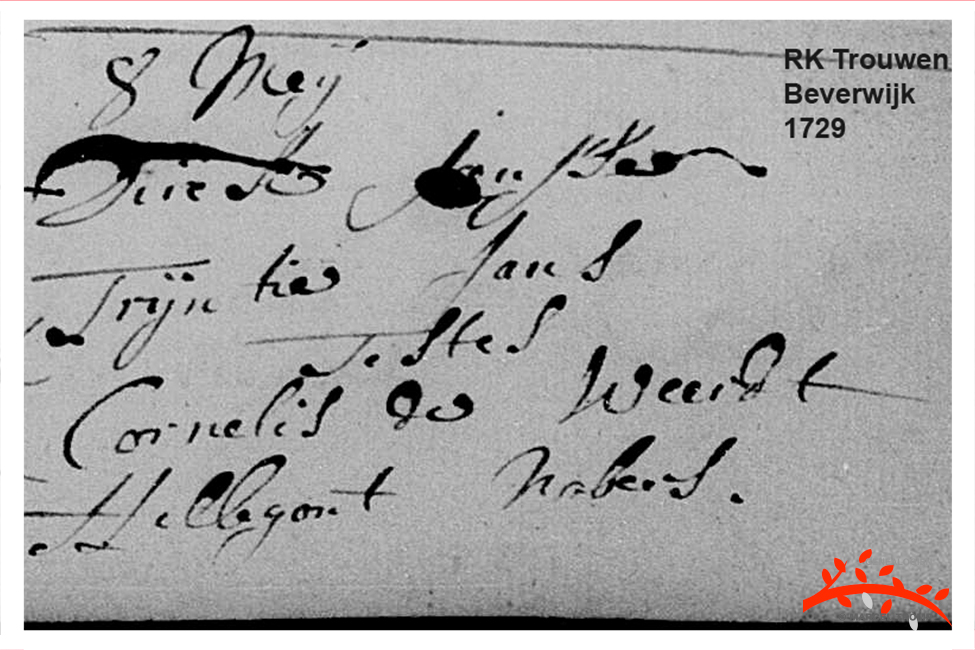 8 Meij
Jans
Trijn tie Jans
Testes
Cornelis de Weerdt
Hillegont Nabers.
RK Trouwen
Beverwijk
1729